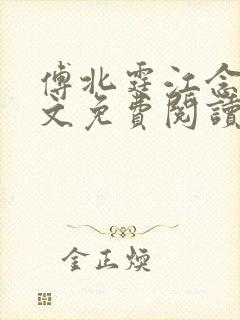 傅北霆江念
文免費閱讀
金正煥